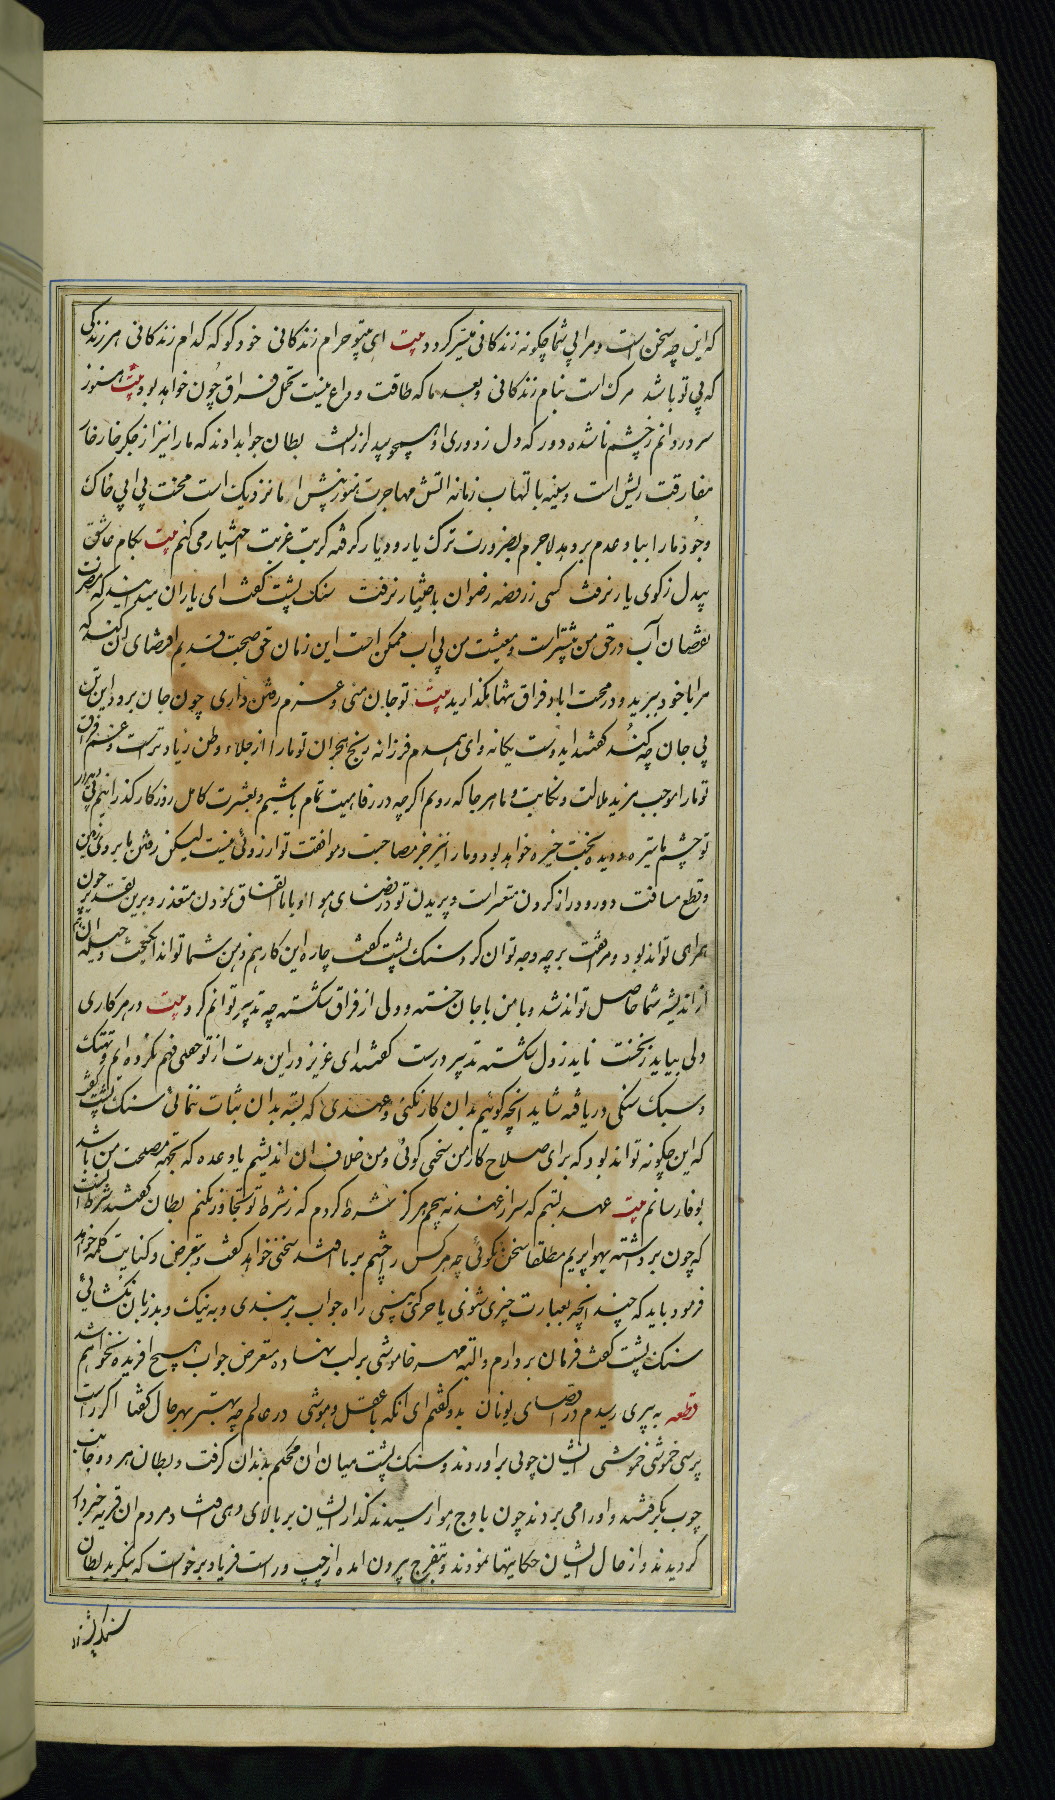 که این چه سخن است و مرا بی شما چگونه زندگانی میسر گردد بیت ای بیتو حرام زندگانی خود کو که کدام زندگانی هر زندگی
که بی تو باشد مرکست بنام زندگانی و بعد ما که طاقت وداع نیست تحمل فراق چون خواهد بود بیت هنوز
سرو روانم ز چشم ناشده دور که دل ز دوری او همچو بید لرزانست بطان جواب دادند که ما را نیز از جکر خار خار
مفارقت ریش است و سینه بالتهاب زبانه اتش مهاجرت اما نزدیک است محنت بی ابی خاک
وجود ما را بباد عدم بر دهد لاجرم بضرورت ترک یار و دیار کرفته کربت غربت اختیار می کنم بیت بکام عاشق
بیدل ز کوی یار نرفت کسی ز روضه رضوان باختیار نرفت سنک پشت کفت ای یاران میدانید که مضرت
نقصان آب در حق من بیشتر است و معیشت من بی اب ممکن است این زمان حق صحبت قدیم اقتضای ان کند که
مرا با خود ببرید و در محنت اباد فراق تنها بکذارید بیت تو جان منی و عزم رفتن داری چون جان برود این تن
بی جان چه کند گفتند ای دوست یکانه وای همدم فرزانه رنج هجران تو ما را از جلاء وطن زیادتر است و غم فراق
تو ما را موجب مزید ملالت و نکایت و ما هر جا که رویم اکر چه در رفاهیت تمام باشیم و بعشرت کامل روزکار گذرانیم بی دیدار
تو چشم ما تیره و دیده بخت خیره خواهد بود و ما را نیز جز مصاحبت و موافقت تو ارزوئی نیست لیکن رفتن ما بر روی زمین
و قطع مسافت دور و دراز کردن متعسر است و پریدن تو در فضای هوا و با ما اتفاق نمودن متعذر و برین تقدیر چون
همراهی تواند بود و مرافقت بر چه وجه توان کرد سنک پشت کفت چاره این کار هم ذهن شما تواند انکیخت و حیله ان هم
از اندیشه شما حاصل تواند شد و با من با جان خسته و دلی از فراق شکسته چه تدبیر توانم کرد بیت در هر کاری
دلی بباید نخست ناید ز دل شکسته تدبیر درست گفتند ای عزیز در این مدت از تو فهم کرده ایم و تهتک
و سبک سنکی دریافته شاید انچه کوئیم بدان کار نکنی و عهدی که بسته بدان ثبات ننمائی سنک پشت کفت
که این چکونه تواند بود که برای صلاح کار من سخنی کوئی و من خلاف ان اندیشم یا وعده که بجهة مصلحت من باشد
بوفا رسانم بیت عهد بستم که سر از عهد نه پیچم هرکز شرط کردم که ز شرط تو تجاوز نکنم بطان گفتند شرط انست
که چون برداشته بهوا بریم مطلقا سخن نکوئی چه هر کس را چشم بر ما افتد سخنی خواهد کفت و بتعرض و کنایت کلمه خواهد
فرمود باید که چندانچه بعبارت چیزی شنوی یا حرکتی بینی راه جواب بر بندی و به نیک و بد زبان نکشائی
سنک پشت کفت فرمان بردارم و البته مهر خاموشی بر لب نهاده متعرض جواب هیچ افریده نخواهم شد
قطعه به پیری رسیدم در اقصای یونان بدو گفتم ای انکه با عقل و هوشی در عالم چه بهتر بهر حال گفتا اکر راست
پرسی خموشی خموشی ایشان چوبی براوردند و سنک پشت میان ان محکم بدندان کرفت و بطان هر دو جانب
چوب بکرفتند و او را می بردند چون باوج هوا رسیدند کذار ایشان بر بالای دهی افتاد مردم ان قریه خبردار
کردیدند و از حال ایشان حکایتها نمودند و بتفرج بیرون امده از چپ و راست فریاد برخواست که بنکرید بطان
سنک پشت را